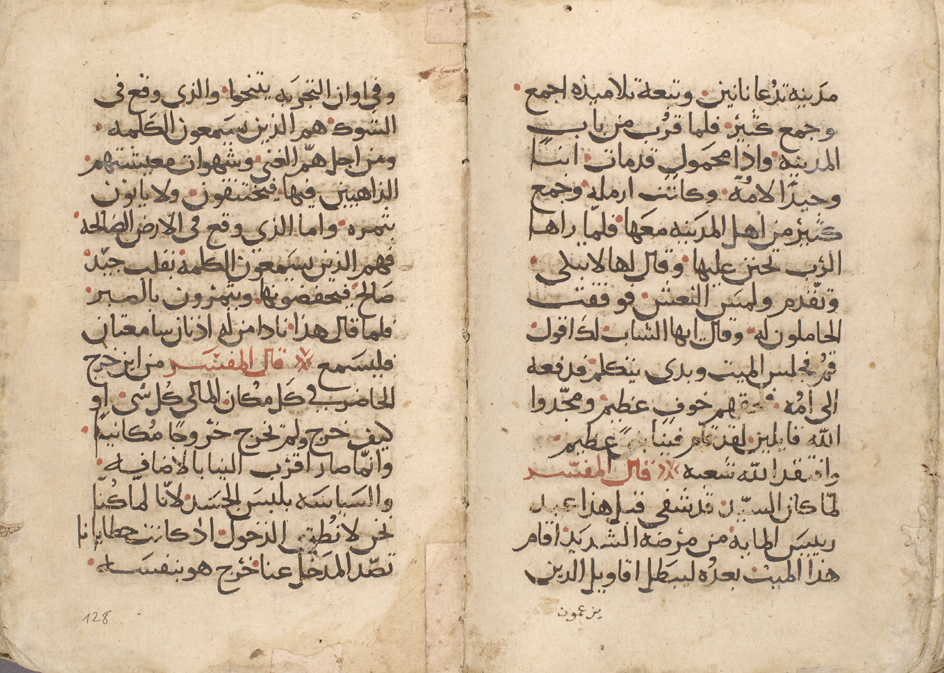 مدينه تدعا نايين وتبعة تلاميذه اجمع
وجمع كثير فلما قرب من باب
المدينه واذا محمول قدمات ابنًا
وحيدًا لامه وكانت ارمله وجمع
كثير من اهل المدينه معها فلما راها
الرب تحنن عليها وقال لها لا تبكي
وتقدم ولمس النعش فوقفت
الحاملون له وقال ايها الشاب لك اقول
قم فجلس الميت وبدى يتكلم فدفعه
الى امه خوف عظيم ومجدوا
الله قايلين لقد قام فينا عظيم
وافتقد الله شعبه قال المفسر
لما كان السيد قد شفى قبل هذا عبد
رييس المايه من مرضه الشديد اقام
هذا الميت بعده ليبطل اقاويل الذين
يزعمون
وفي اوان التجربه يتنحوا والذي وقع في
الشوك هم الذين يسمعون الكلمه
ومن اجل هم الغنى وشهوات معيشتهم
الذاهبين فيها فيختنقون ولا ياتون
بثمره واما الذي وقع في الارض الصالحه
فهم الذين يسمعون الكلمة بقلب جيد
صالح فيحفضونها ويثمرون بالصبر
فلما قال هذا نادا من له اذنان سامعتان
فليسمع قال المفسر من اين خرج
الحاضر في كل مكان المالي كل شي او
كيف خرج ولم تخرج خروجًا مكانيه
وانما صار اقرب الينا بالاضافه
والسياسه بلبس الجسد لانا لما كنا
نحن لا نطيق الدخول اذ كانت خطايانا
تصد المدخل عنا خرج هو بنفسه
128